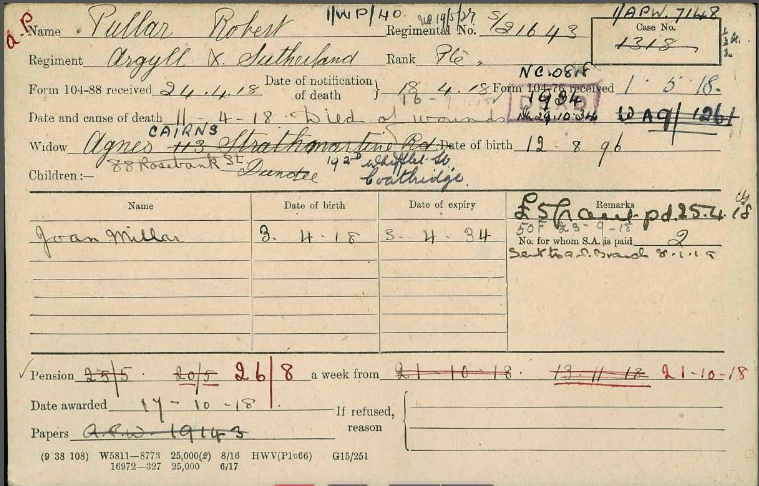 a.P
1/WP/40. 19/5/27 1/APW. 7148
Name Pullar Robert Regimental No. S/21643 Case No. 1318
Regiment Argyll & Sutherland Rank Pte.
NC.0818
Form 104-88 received 24.4.18 Date of notification of death } 18.4.18 Form 104-76 received 1.5.18.
Date and cause of death 11-4-18 Died of wounds
CAIRNS
Widow Agnes 113 Strathmartine Rd. Date of birth 12 8 96
88 Rosebank St Dundee
Children:— Coatbridge.
Name Date of birth Date of expiry Remarks
£5 Grant pd. 25.4.18
50F 23-9-18
Joan Millar 3.4.18 3.4.34 No. for whom S.A. is paid 2
Pension 25/5. 20/5 26/8 a week from 21-10-18. 13-11-18 21-10-18
Date awarded 17-10-18. If refused, reason
Papers A.P.W. 19143
(9 38 108) W5811—8773 25,000(2) 8/16 HWV(P1066) G15/251
16972—327 25,000 6/17